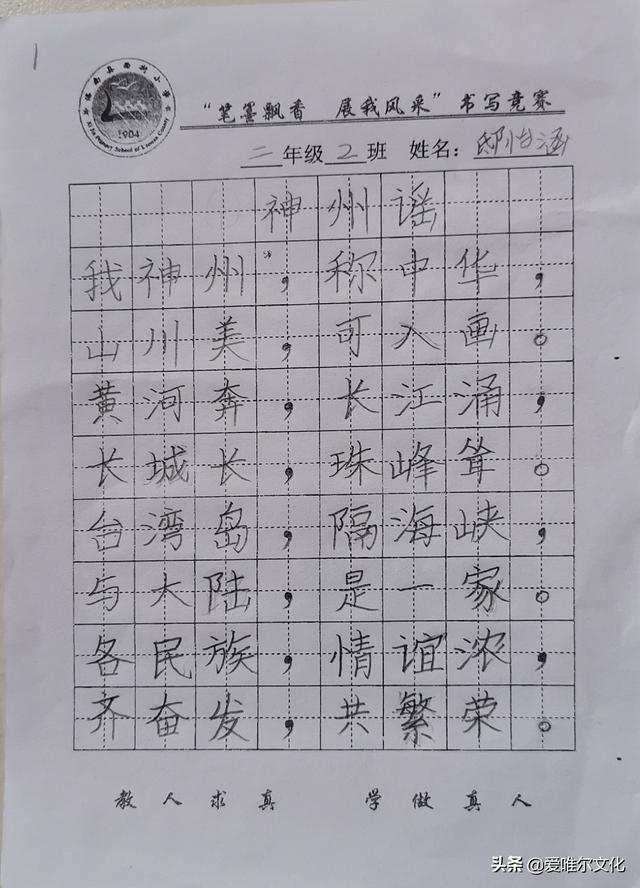 1
1904
“笔墨飘香 展我风采”书写竞赛
二年级2班 姓名：邸怡涵
神州谣
我神州，称中华，
山川美，可入画。
黄河奔，长江涌，
长城长，珠峰耸。
台湾岛，隔海峡，
与大陆，是一家。
各民族，情谊浓，
齐奋发，共繁荣。
教人求真 学做真人
头条 @爱唯尔文化